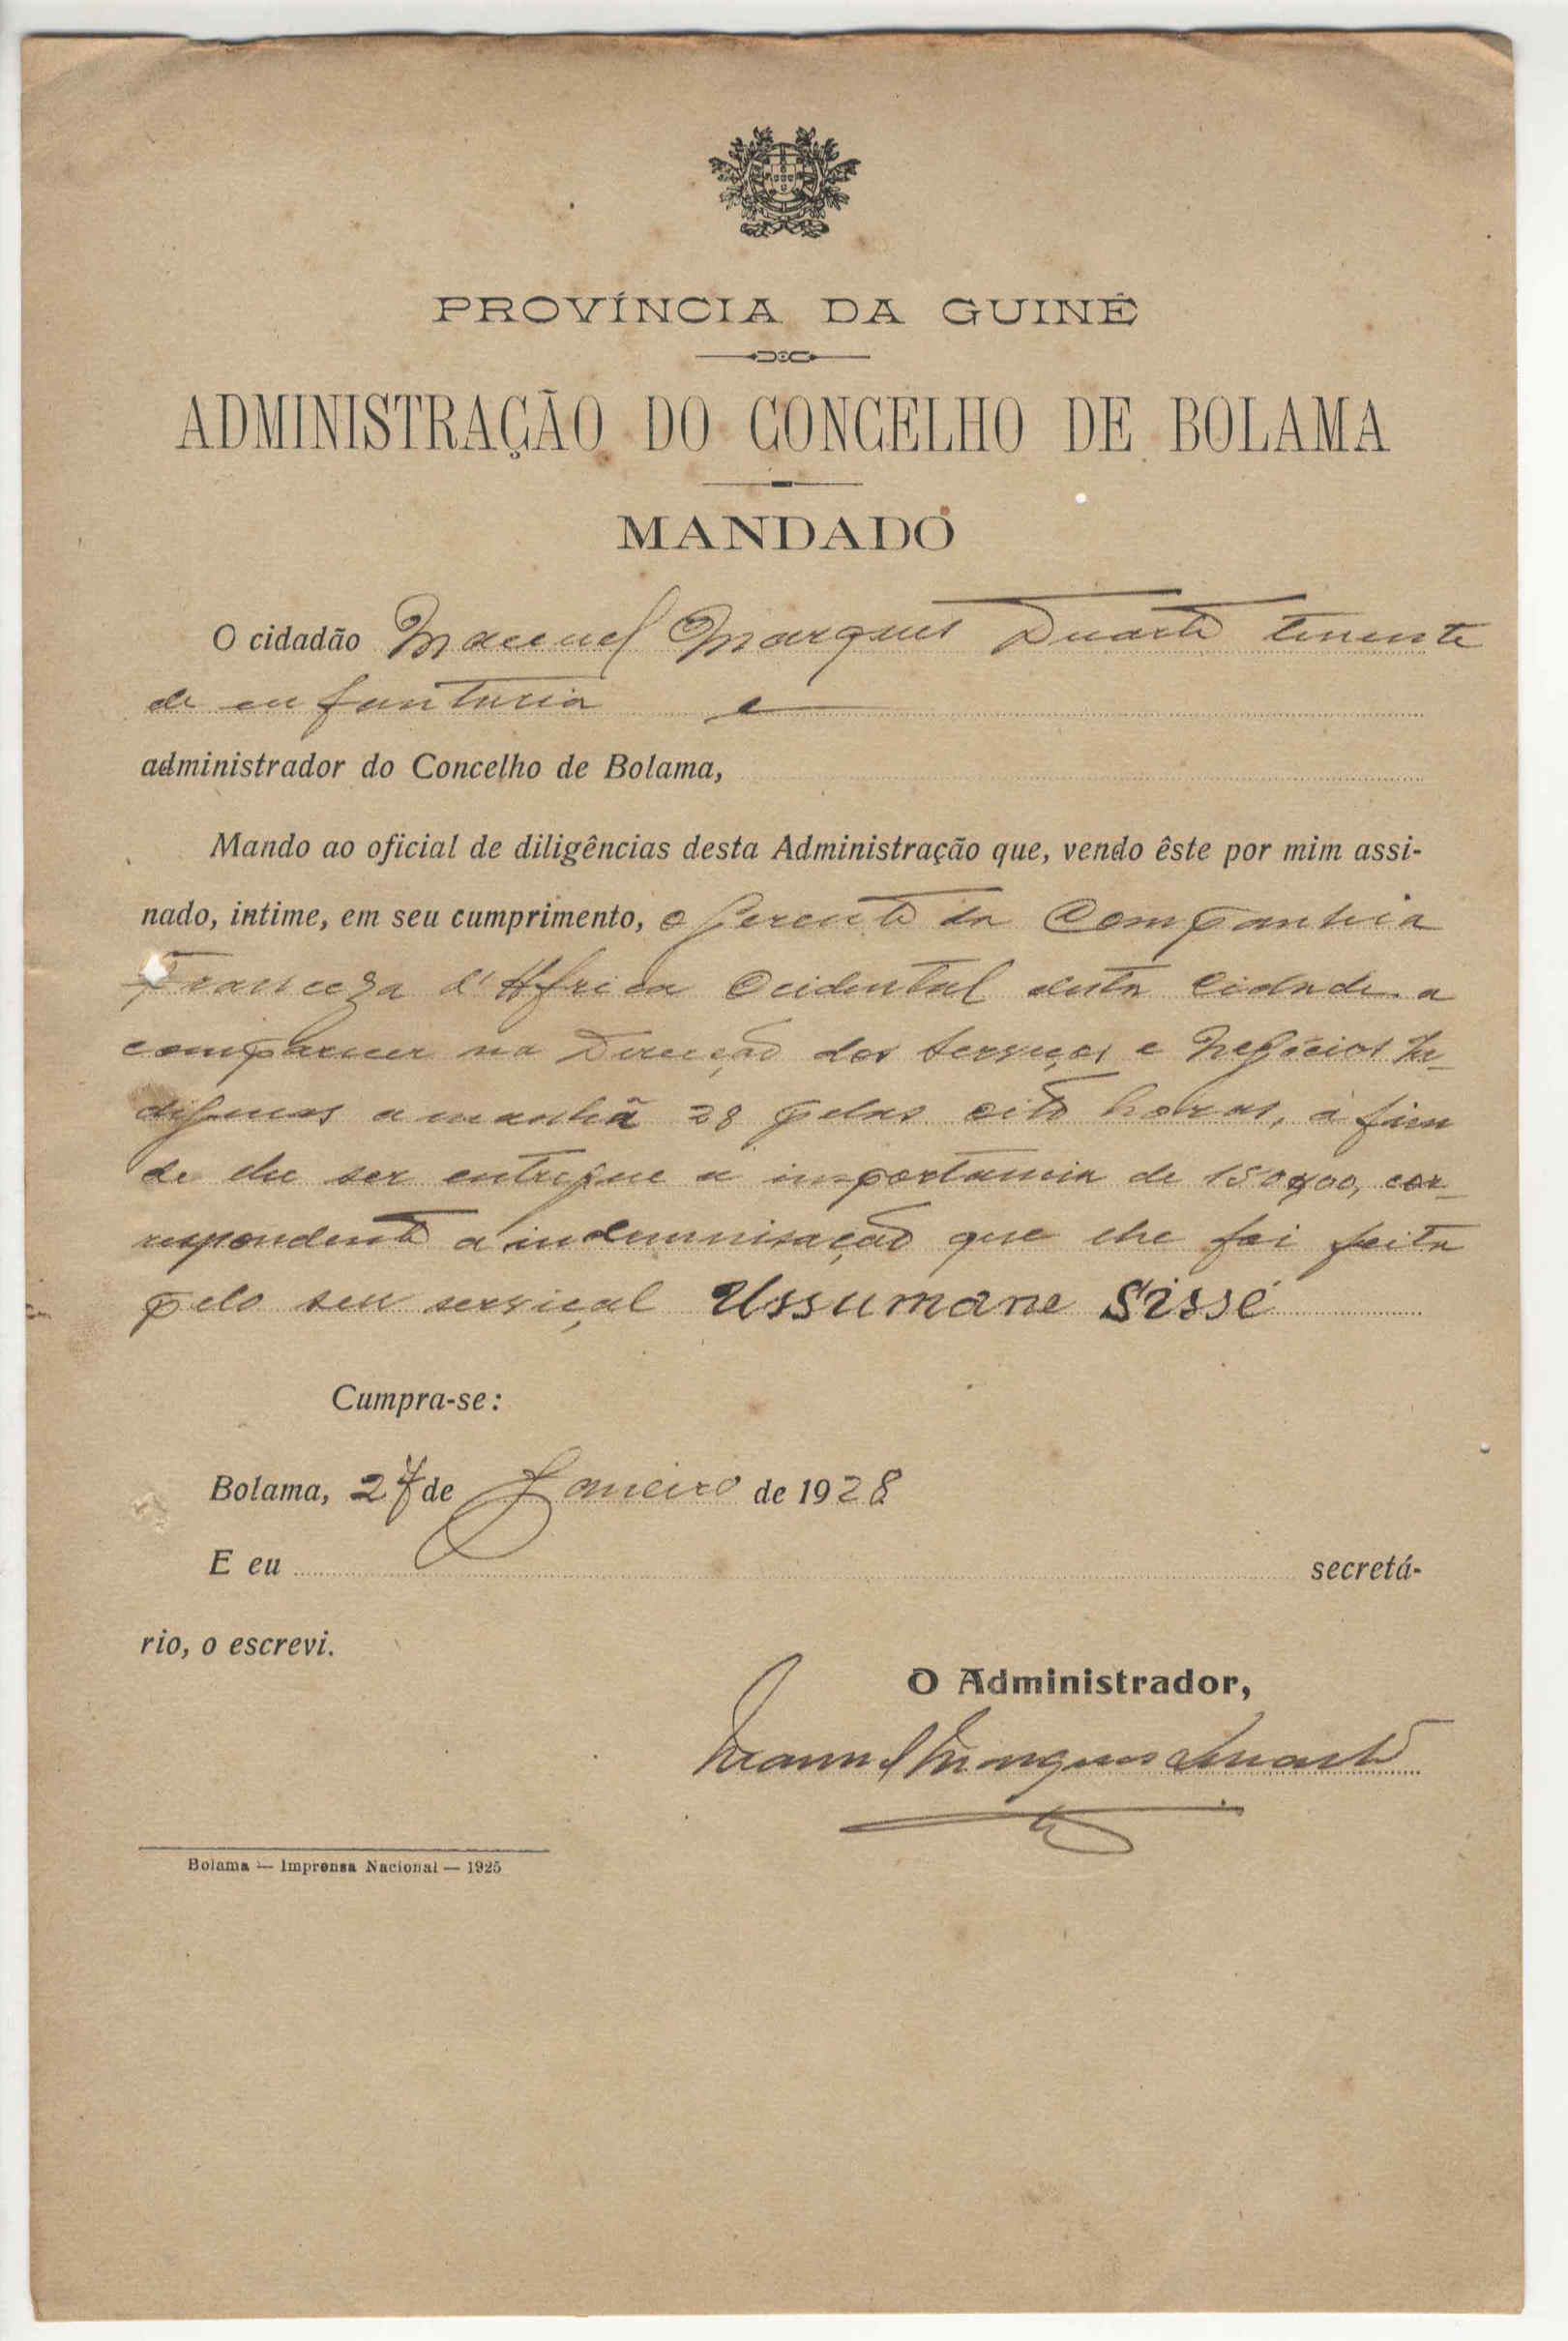 PROVÍNCIA DA GUINÉ
ADMINISTRAÇÃO DO CONCELHO DE BOLAMA
MANDADO
O cidadão Manuel Marques Duarte tenente
de enfanturia e
administrador do Concelho de Bolama,
Mando ao oficial de diligências desta Administração que, vendo êste por mim assi-
nado, intime, em seu cumprimento, o gerente da Companhia
Franceza d'Africa Ocidental desta cidade a
comparecer na Direcção dos Serviços e Negócios In-
digenas amanhã 28 pelas oito horas, a fim
de lhe ser entregue a importancia de 150$00, cor-
respondente a indemnisação que lhe foi feita
pelo seu serviçal Ussumane Sissé
Cumpra-se:
Bolama, 27 de Janeiro de 1928
E eu secretá-
rio, o escrevi.
O Administrador,
Manuel Marques Duarte
Bolama — Imprensa Nacional — 1925